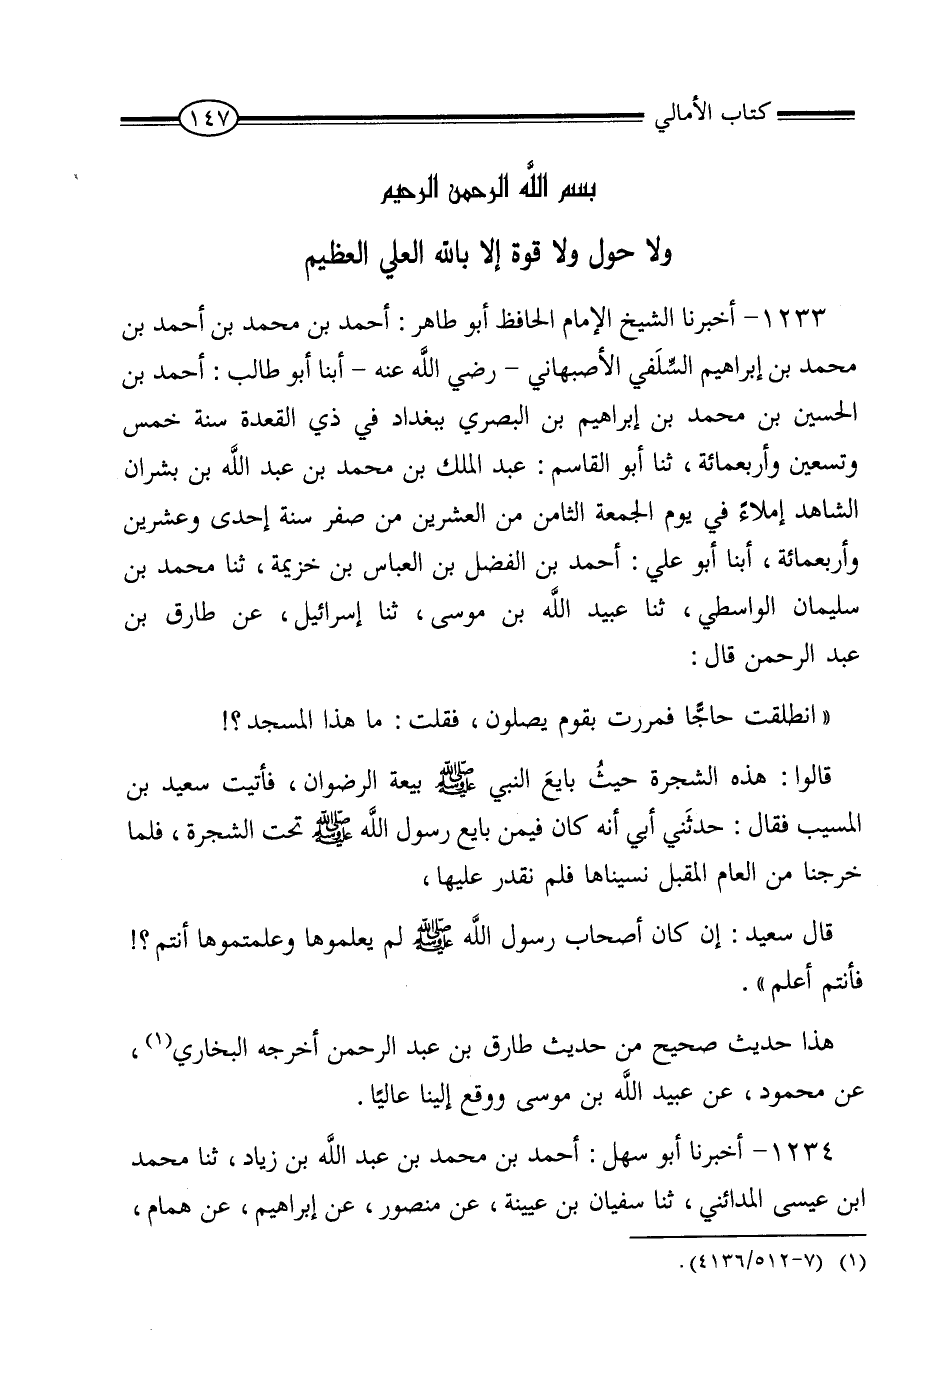 كتاب الأمالي ١٤٧
بسم اللَّه الرحمن الرحيم
ولا حول ولا قوة إلا بالله العلي العظيم
١٢٣٣- أخبرنا الشيخ الإمام الحافظ أبو طاهر : أحمد بن محمد بن أحمد بن
محمد بن إبراهيم السِّلَفي الأصبهاني - رضي اللَّه عنه - أبنا أبو طالب : أحمد بن
الحسين بن محمد بن إبراهيم بن البصري ببغداد في ذي القعدة سنة خمس
وتسعين وأربعمائة ، ثنا أبو القاسم : عبد الملك بن محمد بن عبد اللَّه بن بشران
الشاهد إملاءً في يوم الجمعة الثامن من العشرين من صفر سنة إحدى وعشرين
وأربعمائة ، أبنا أبو علي : أحمد بن الفضل بن العباس بن خزيمة ، ثنا محمد بن
سليمان الواسطي ، ثنا عبيد اللَّه بن موسى ، ثنا إسرائيل ، عن طارق بن
عبد الرحمن قال :
« انطلقت حاجًّا فمررت بقوم يصلون ، فقلت : ما هذا المسجد ؟!
قالوا : هذه الشجرة حيثُ بايعَ النبي ﷺ بيعة الرضوان ، فأتيت سعيد بن
المسيب فقال : حدثَني أبي أنه كان فيمن بايع رسول اللَّه ﷺ تحت الشجرة ، فلما
خرجنا من العام المقبل نسيناها فلم نقدر عليها ،
قال سعيد : إن كان أصحاب رسول اللَّه ﷺ لم يعلموها وعلمتموها أنتم ؟!
فأنتم أعلم » .
هذا حديث صحيح من حديث طارق بن عبد الرحمن أخرجه البخاري(١) ،
عن محمود ، عن عبيد اللَّه بن موسى ووقع إلينا عاليًا .
١٢٣٤- أخبرنا أبو سهل : أحمد بن محمد بن عبد اللَّه بن زياد ، ثنا محمد
ابن عيسى المدائني ، ثنا سفيان بن عيينة ، عن منصور ، عن إبراهيم ، عن همام ،
(١) (٧-٤١٣٦/٥١٢) .